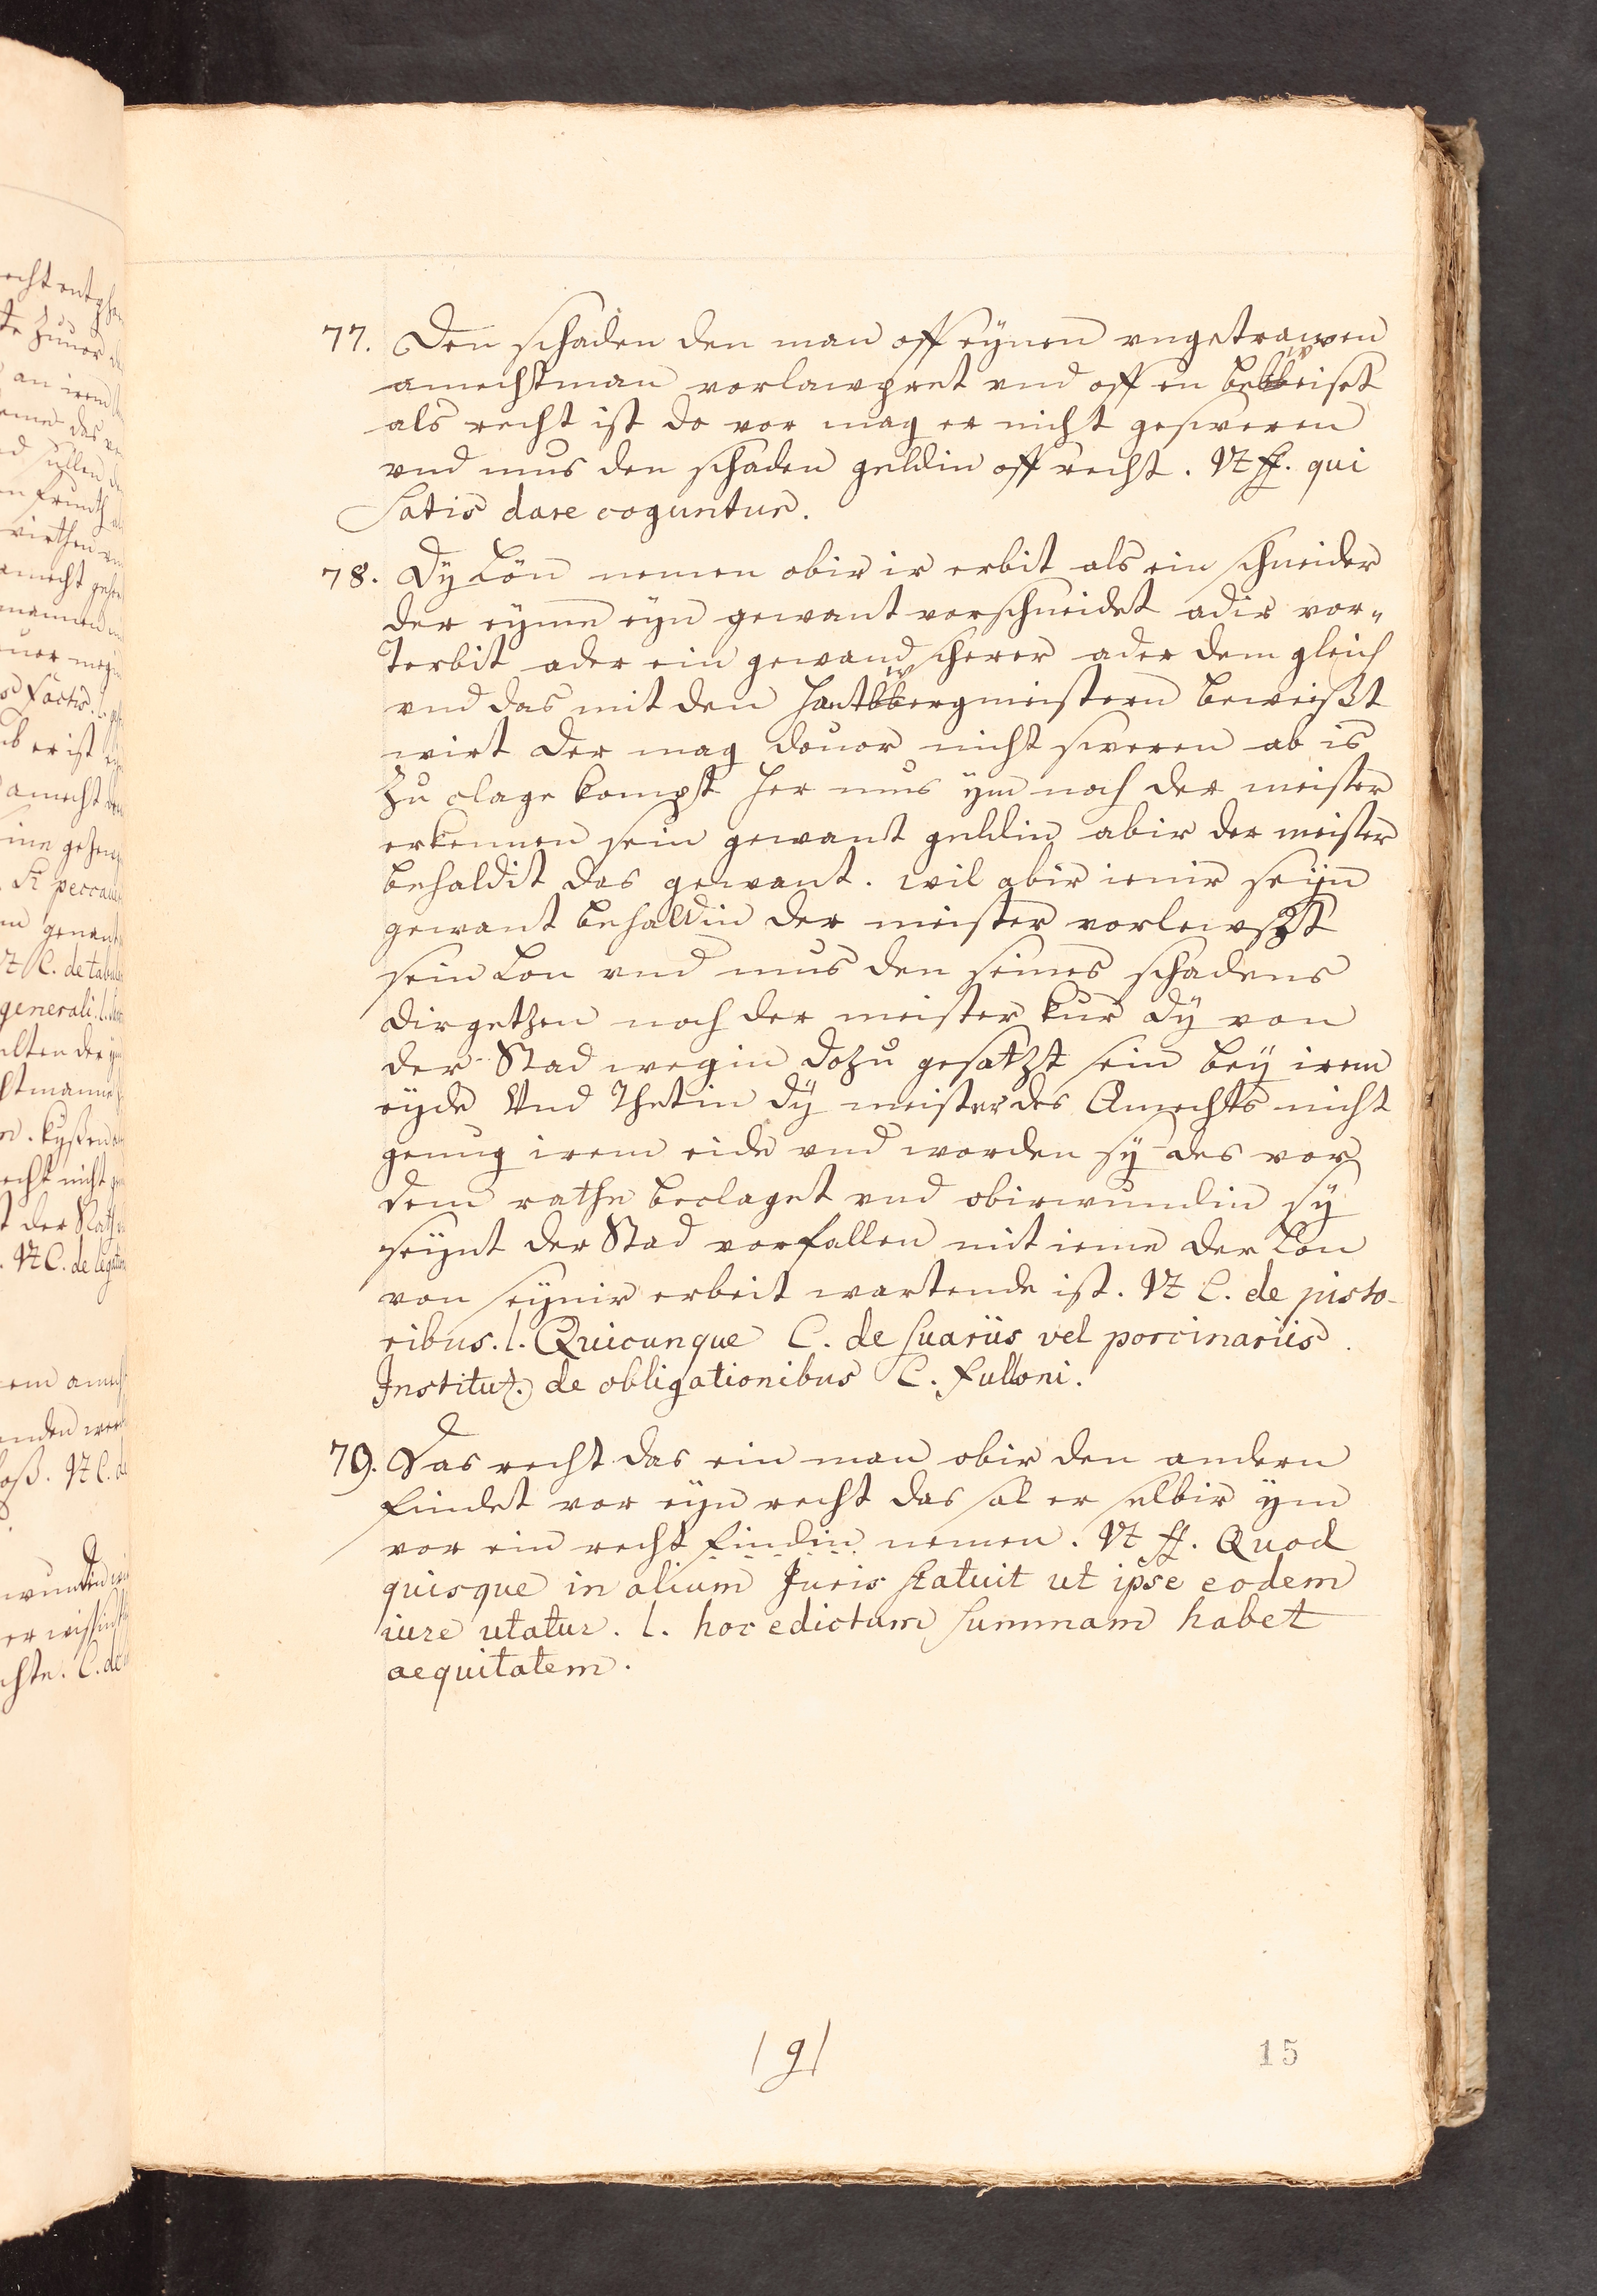 77. Den schaden den man off eynen vngetrawen
amechtman vorlawpret vnd off en beweiset
als recht ist do vor mag er nicht gesweren
vnd mus den schaden geldin off recht. Vt ff. qui
Satis dare coguntur.
78. Dy Lön nemen obir ir erbit als ein schneider
der eyme eyn gewant vorschneidet adir vor„
Terbit ader ein gewand scherer ader dem gleich
vnd das mit den hantwergmeistern beweißt
wirt der mag douor nicht sweren ab is
zu clage kompt her mus ym noch der meister
erkennen sein gewant geldin abir der meister
behaldit das gewant. wil abir ienir seyn
gewant behaldin der meister vorlewszt
sein Lon vnd mus den seines schadens
dirgetzen noch der meister kur dy von
der Stad wegin dozu gesatzt sein bey irem
eyde Vnd Thetin dy meister des Amechts nicht
genug irem eide vnd worden sy des vor
dem rathe beclaget vnd obirwundin sy
seynt der Stad vorfallen mit ieme der Lon
von seynir erbeit wartende ist. Vt C. de pisto-
ribus. l. Quicunque C. de suariis vel porcinariis.
Institut. de obligationibus C. fulloni.
79. Das recht das ein man obir den andern
findet vor eyn recht das sal er selbir ym
vor ein recht findin nemen. Vt ff. Quod
quisque in alium Juris statuit ut ipse eodem
iure utatur. l. hoc edictum summam habet
aequitatem.
15